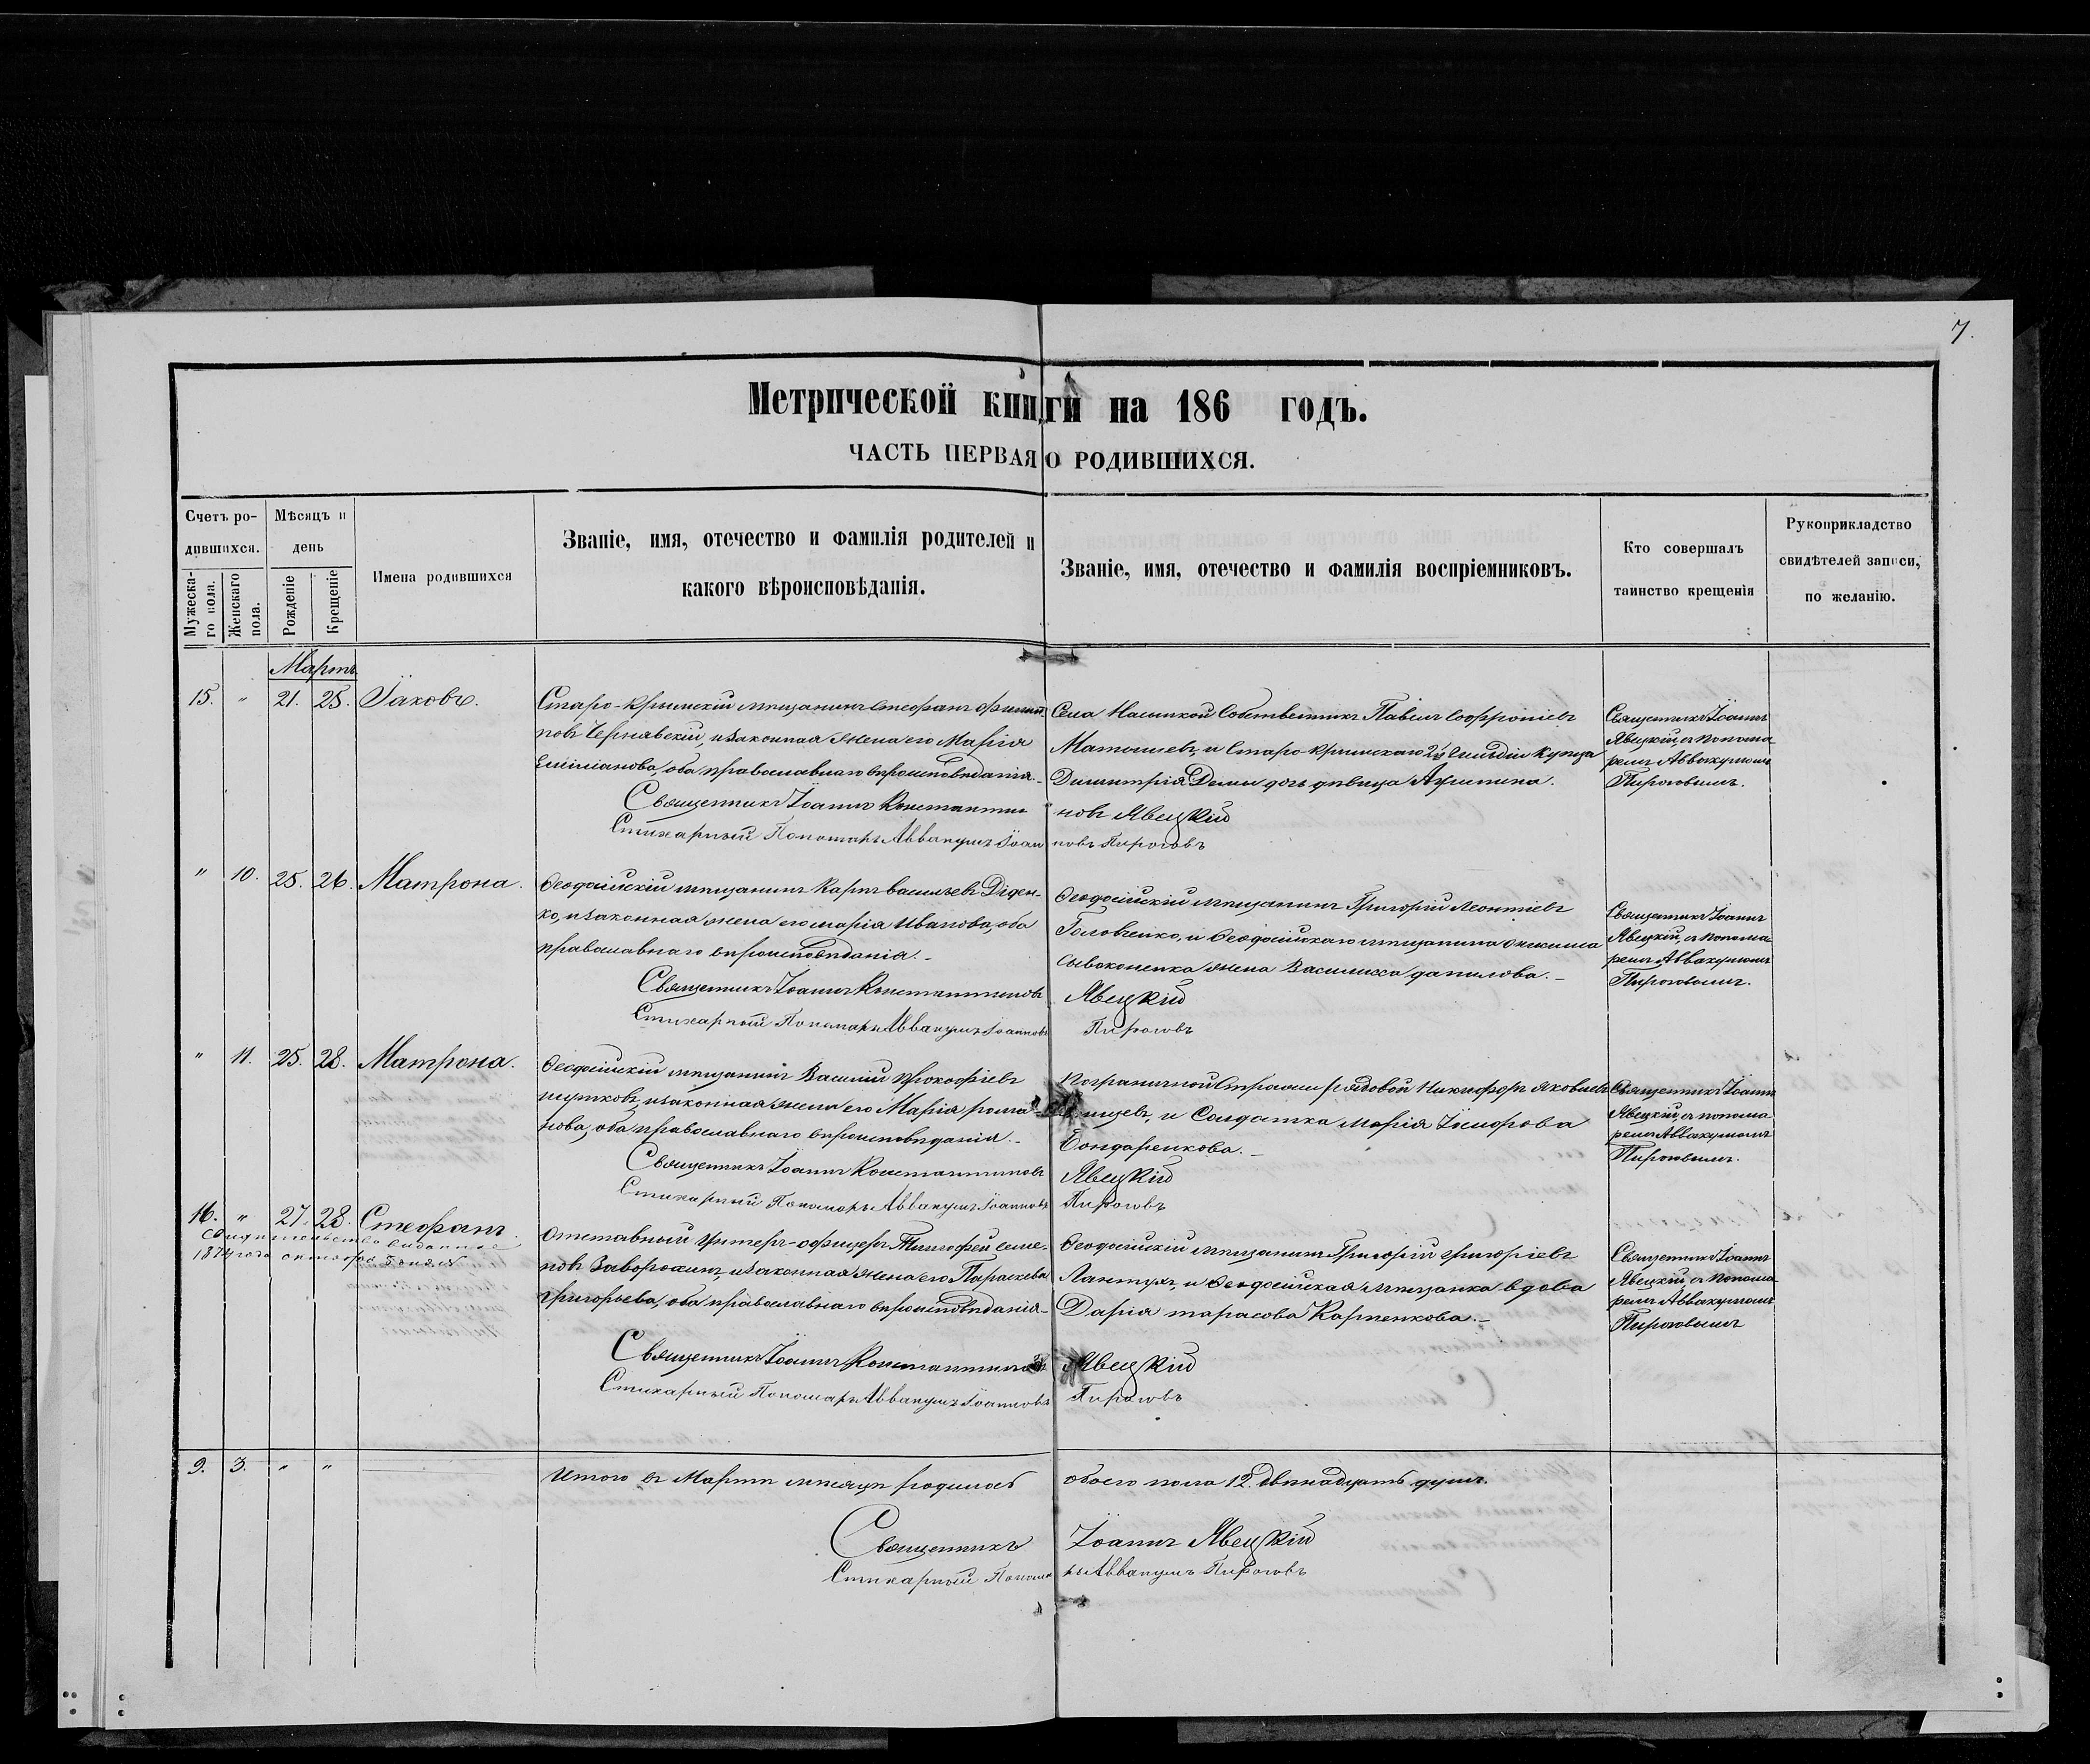 7.
Метрической книги на 186 годъ.
ЧАСТЬ ПЕРВАЯ О РОДИВШИХСЯ.
Счетъ родившихся.
Мужескаго пола.
Женскаго пола.
Мѣсяцъ и день
Рожденіе
Крещеніе
Имена родившихся
Званіе, имя, отечество и фамилія родителей и
какого вѣроисповѣданія.
Званіе, имя, отечество и фамилія воспріемниковъ.
Кто совершалъ
таинство крещенія
Рукоприкладство
свидѣтелей записи,
по желанію.
Мартъ
15. " 21. 25. Іаковъ.
Старо-Крымскій мѣщанинъ Стефанъ Филип
повъ Чернявскій, и законная жена его Марія
Емиліанова, оба православнаго вѣроисповѣданія.
Села Насыпкой Собственникъ Павелъ Софроніевъ
и Старо Крымскаго 2й Гильдіи Купца
Димитрія дочь дѣвица
Священникъ Іоаннъ
Явецкій, съ понома
ремъ Аввакумомъ
Пироговымъ.
Священникъ Іоаннъ Константиновъ Явецкій
Стихарный Пономарь Аввакумъ Іоанновъ Пироговъ
" 10. 25. 26. Матрона.
Ѳеодосійскій мѣщанинъ Карпъ Васильевъ Діден-
ко, и законная жена его Марія Иванова, оба
православнаго вѣроисповѣданія.-
Ѳеодосійскій мѣщанинъ Григорій Леонтіевъ
Головченко, и Ѳеодосійскаго мѣщанина Онисима
Сывоконенка жена Василисса Данилова.-
Священникъ Іоаннъ
Явецкій, съ понома
ремъ Аввакумомъ
Пироговымъ.
Священникъ Іоаннъ Константиновъ Явецкій
Стихарный Пономарь Аввакумъ Іоанновъ Пироговъ
" 11. 25. 28. Матрона.
Ѳеодосійскій мѣщанинъ Василій Прокофіевъ
и законная жена его Марія Рома
нова, оба православнаго вѣроисповѣданія.-
Пограничной Стражи рядовой Никифоръ Яковлевъ
и Солдатка Марія
Бондаренкова.-
Священникъ Іоаннъ
Явецкій, съ понома
ремъ Аввакумомъ
Пироговымъ.
Священникъ Іоаннъ Константиновъ Явецкій
Стихарный Пономарь Аввакумъ Іоанновъ Пироговъ
16. " 27. 28. Стефанъ.
Свидительство виданное
1874 года октября
Отставный Унтеръ-офицеръ Тимофей Семе-
новъ Заворокинъ, и законная жена его Параскева
Григорьева, оба православнаго вѣроисповѣданія-
Ѳеодосійскій мѣщанинъ Григорій Григоріевъ
Лантухъ, и Ѳеодосійская мѣщанка вдова
Дарія Тарасова Карпенкова.-
Священникъ Іоаннъ
Явецкій, съ понома
ремъ Аввакумомъ
Пироговымъ
Священникъ Іоаннъ Константиновъ Явецкій
Стихарный Пономарь Аввакумъ Іоанновъ Пироговъ
9. 3. " " Итого въ Мартѣ мѣсяцѣ родилось обоего пола 12. двѣнадцать душъ.
Священникъ Іоаннъ Явецкій
Стихарный Пономарь Аввакумъ Пироговъ